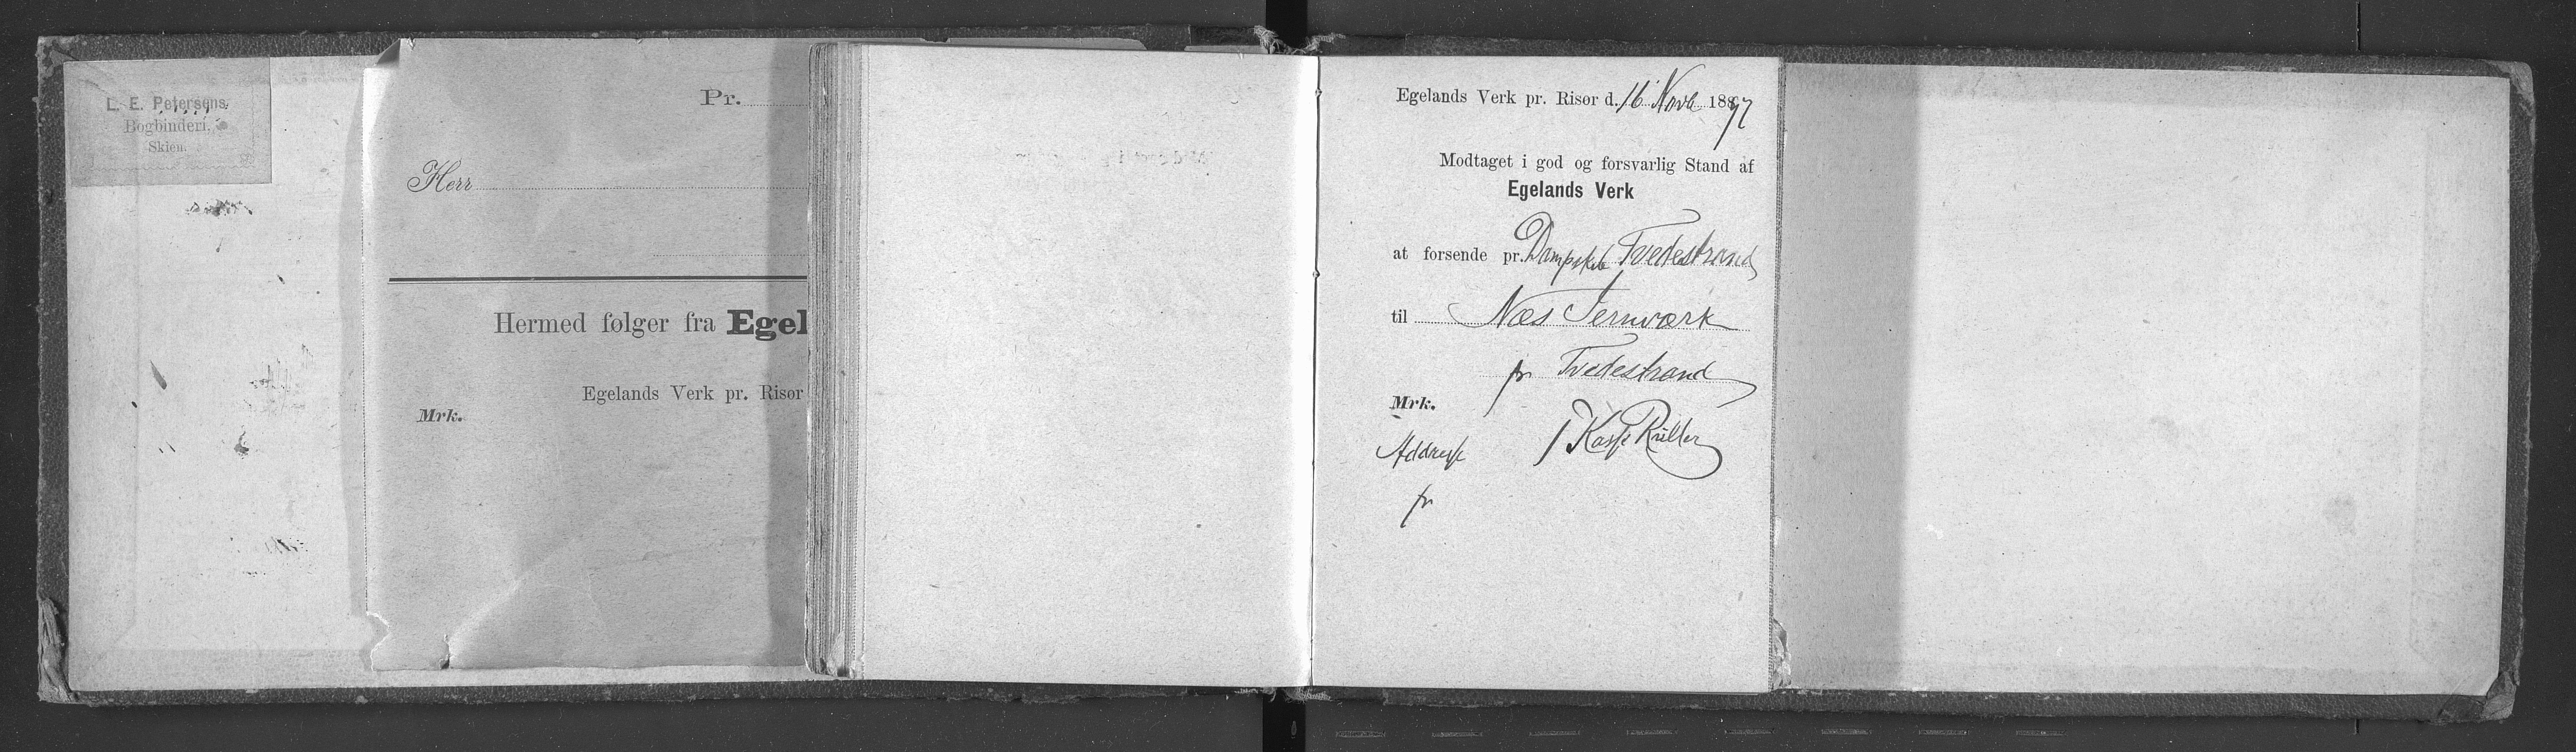 L. E. Petersens
Bogbinderi,
Skien.
Pr.
Herr
Hermed følger fra Egel
Egelands Verk pr. Risør
Mrk.
Egelands Verk pr. Risør d. 16 Novb 1897
Modtaget i god og forsvarlig Stand af
Egelands Verk
at forsende pr. Dampskib Tvedestrand
til Næs Jernværk
pr Tvedestrand
Mrk.
Addresse
pr